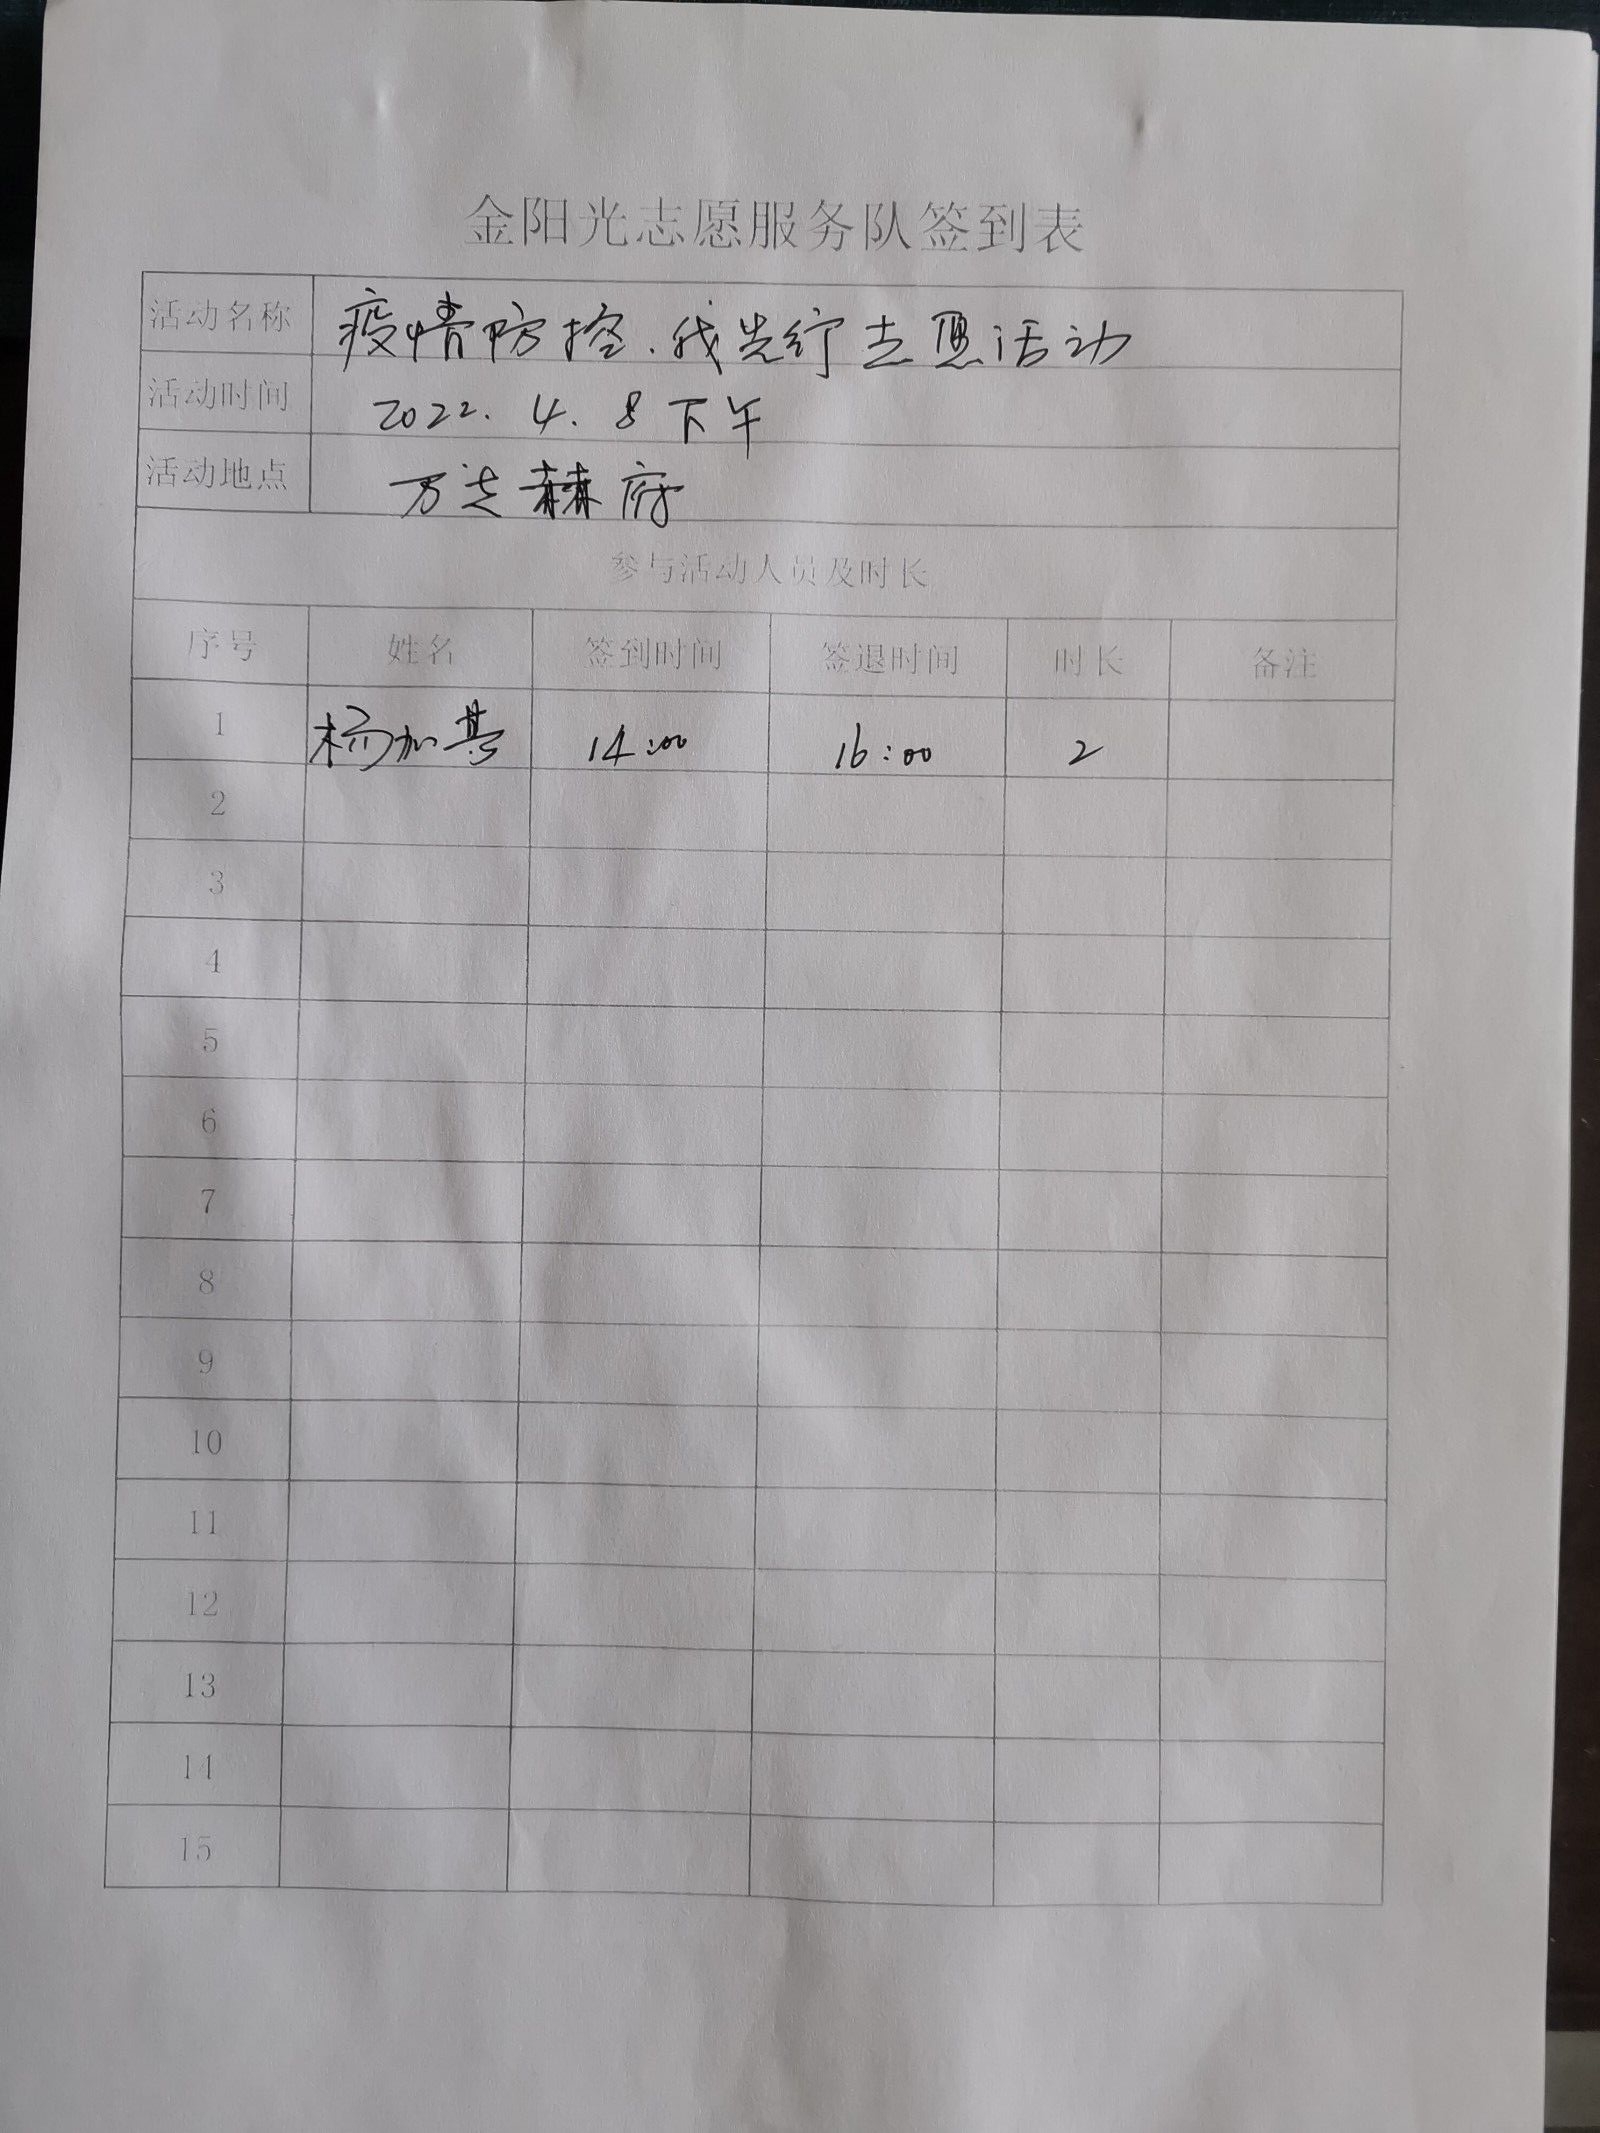 金阳光志愿服务队签到表
活动名称 疫情防控.我先行志愿活动
活动时间 2022.4.8下午
活动地点 万达 府
参与活动人员及时长
序号 姓名 签到时间 签退时间 时长 备注
1 杨加 14:00 16:00 2
2
3
4
5
6
7
8
9
10
11
12
13
14
15